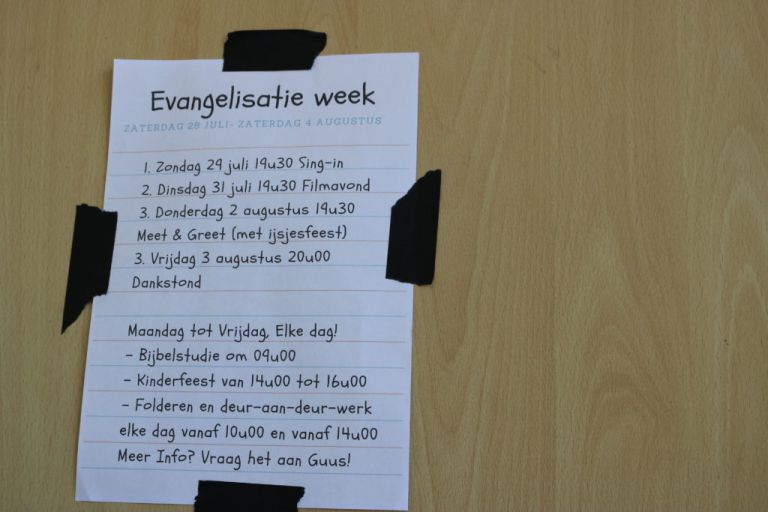 Evangelisatie week
ZATERDAG 28 JULI- ZATERDAG 4 AUGUSTUS
1. Zondag 29 juli 19u30 Sing-in
2. Dinsdag 31 juli 19u30 Filmavond
3. Donderdag 2 augustus 19u30
Meet & Greet (met ijsjesfeest)
3. Vrijdag 3 augustus 20u00
Dankstond
Maandag tot Vrijdag, Elke dag!
- Bijbelstudie om 09u00
- Kinderfeest van 14u00 tot 16u00
- Folderen en deur-aan-deur-werk
elke dag vanaf 10u00 en vanaf 14u00
Meer Info? Vraag het aan Guus!